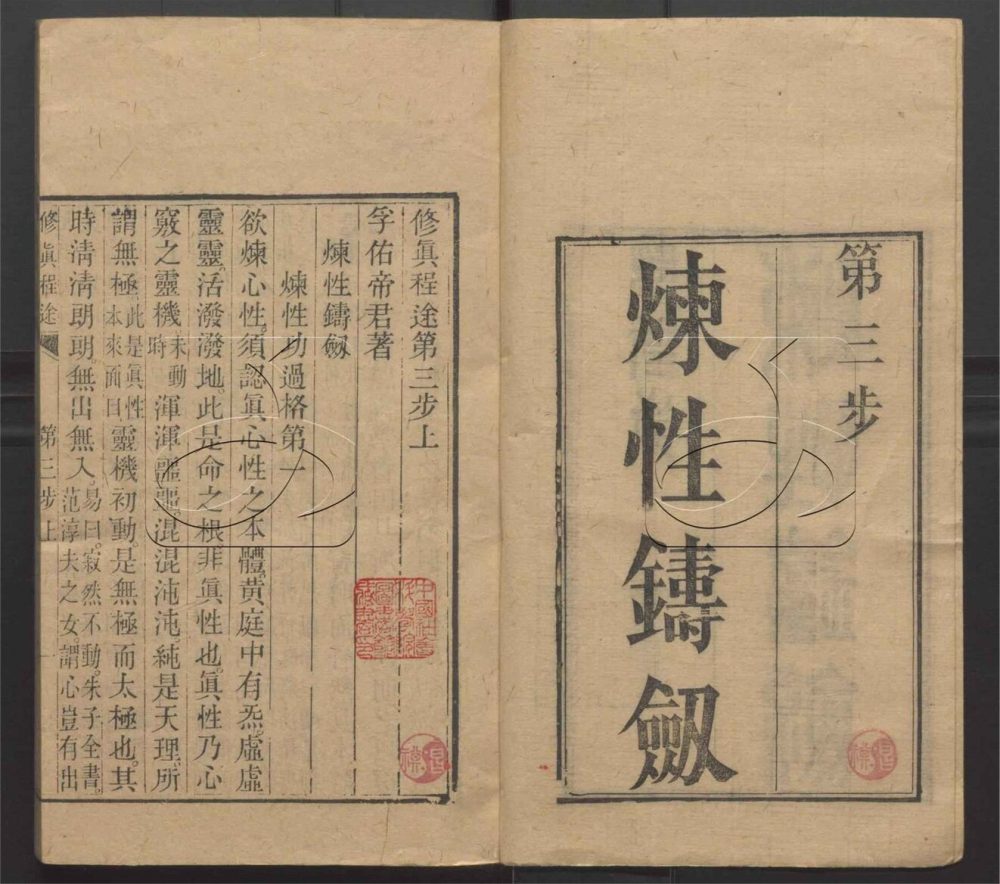 第三步
煉性鑄劔
修眞程途第三步上
孚佑帝君著
煉性鑄劔
煉性功過格第一
欲煉心性。須認眞心性之本體。黃庭中有炁。虛虛
靈靈。活潑潑地。此是命之根。非眞性也。眞性乃心
竅之靈機未動時渾渾噩噩。混混沌沌。純是天理。所
謂無極此是眞性本來面目靈機初動。是無極而太極也。其
時淸淸朗朗。無出無入。易曰。寂然不動。朱子全書。范淳夫之女。謂心豈有出
修眞程途 第三步上 一